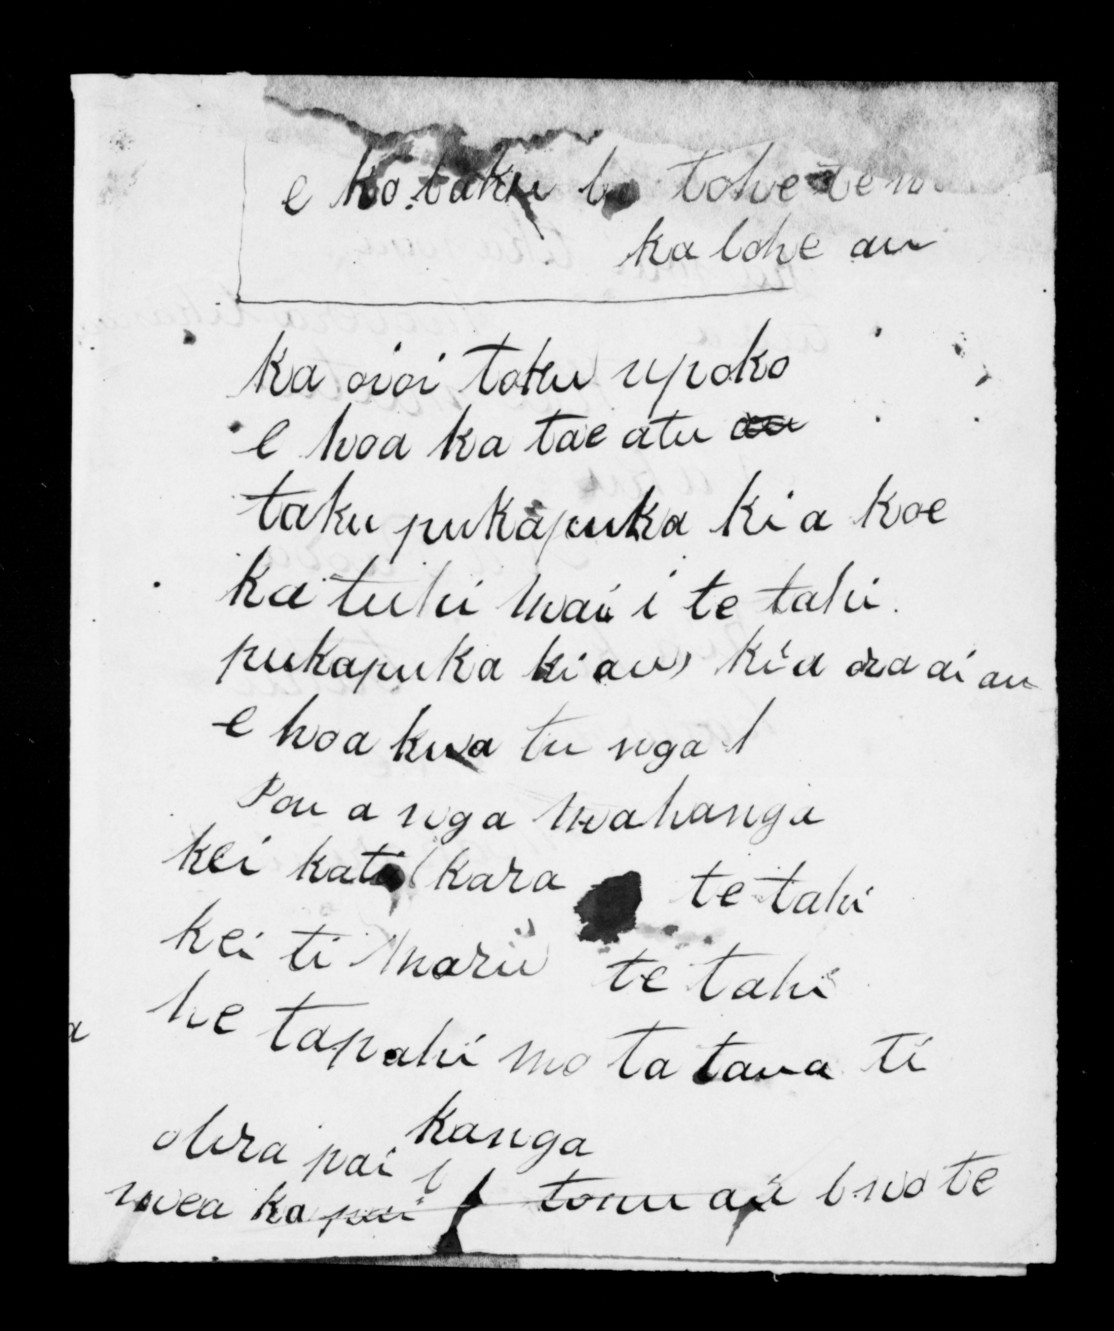 e ko taku to tohe teno
ka tohe au
ka oioi toku upoko
e hoa ka tae atu au
taku pukapuka ki a koe
ka tuhi mai i te tahi
pukapuka ki au kia ora ai au
e hoa kua tu nga
Pou a nga mahanga
kei kati kara te tahi
kei ti marii te tahi
he tapahi mo ta taua ti
kanga
pai
mea ka pai te